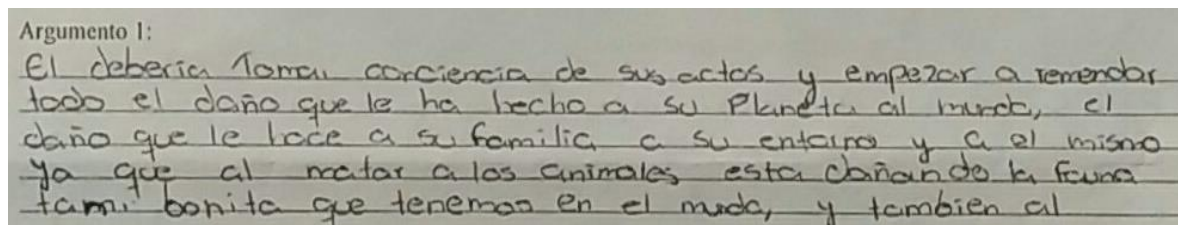 Argumento 1:
El deberia Tomar conciencia de sus actos y empezar a remendar
todo el daño que le ha hecho a su Planeta al mundo, el
daño que le hace a su familia a su entorno y a el mismo
ya que al matar a los animales esta dañando la fauna
tam bonita que tenemos en el mundo, y tambien al